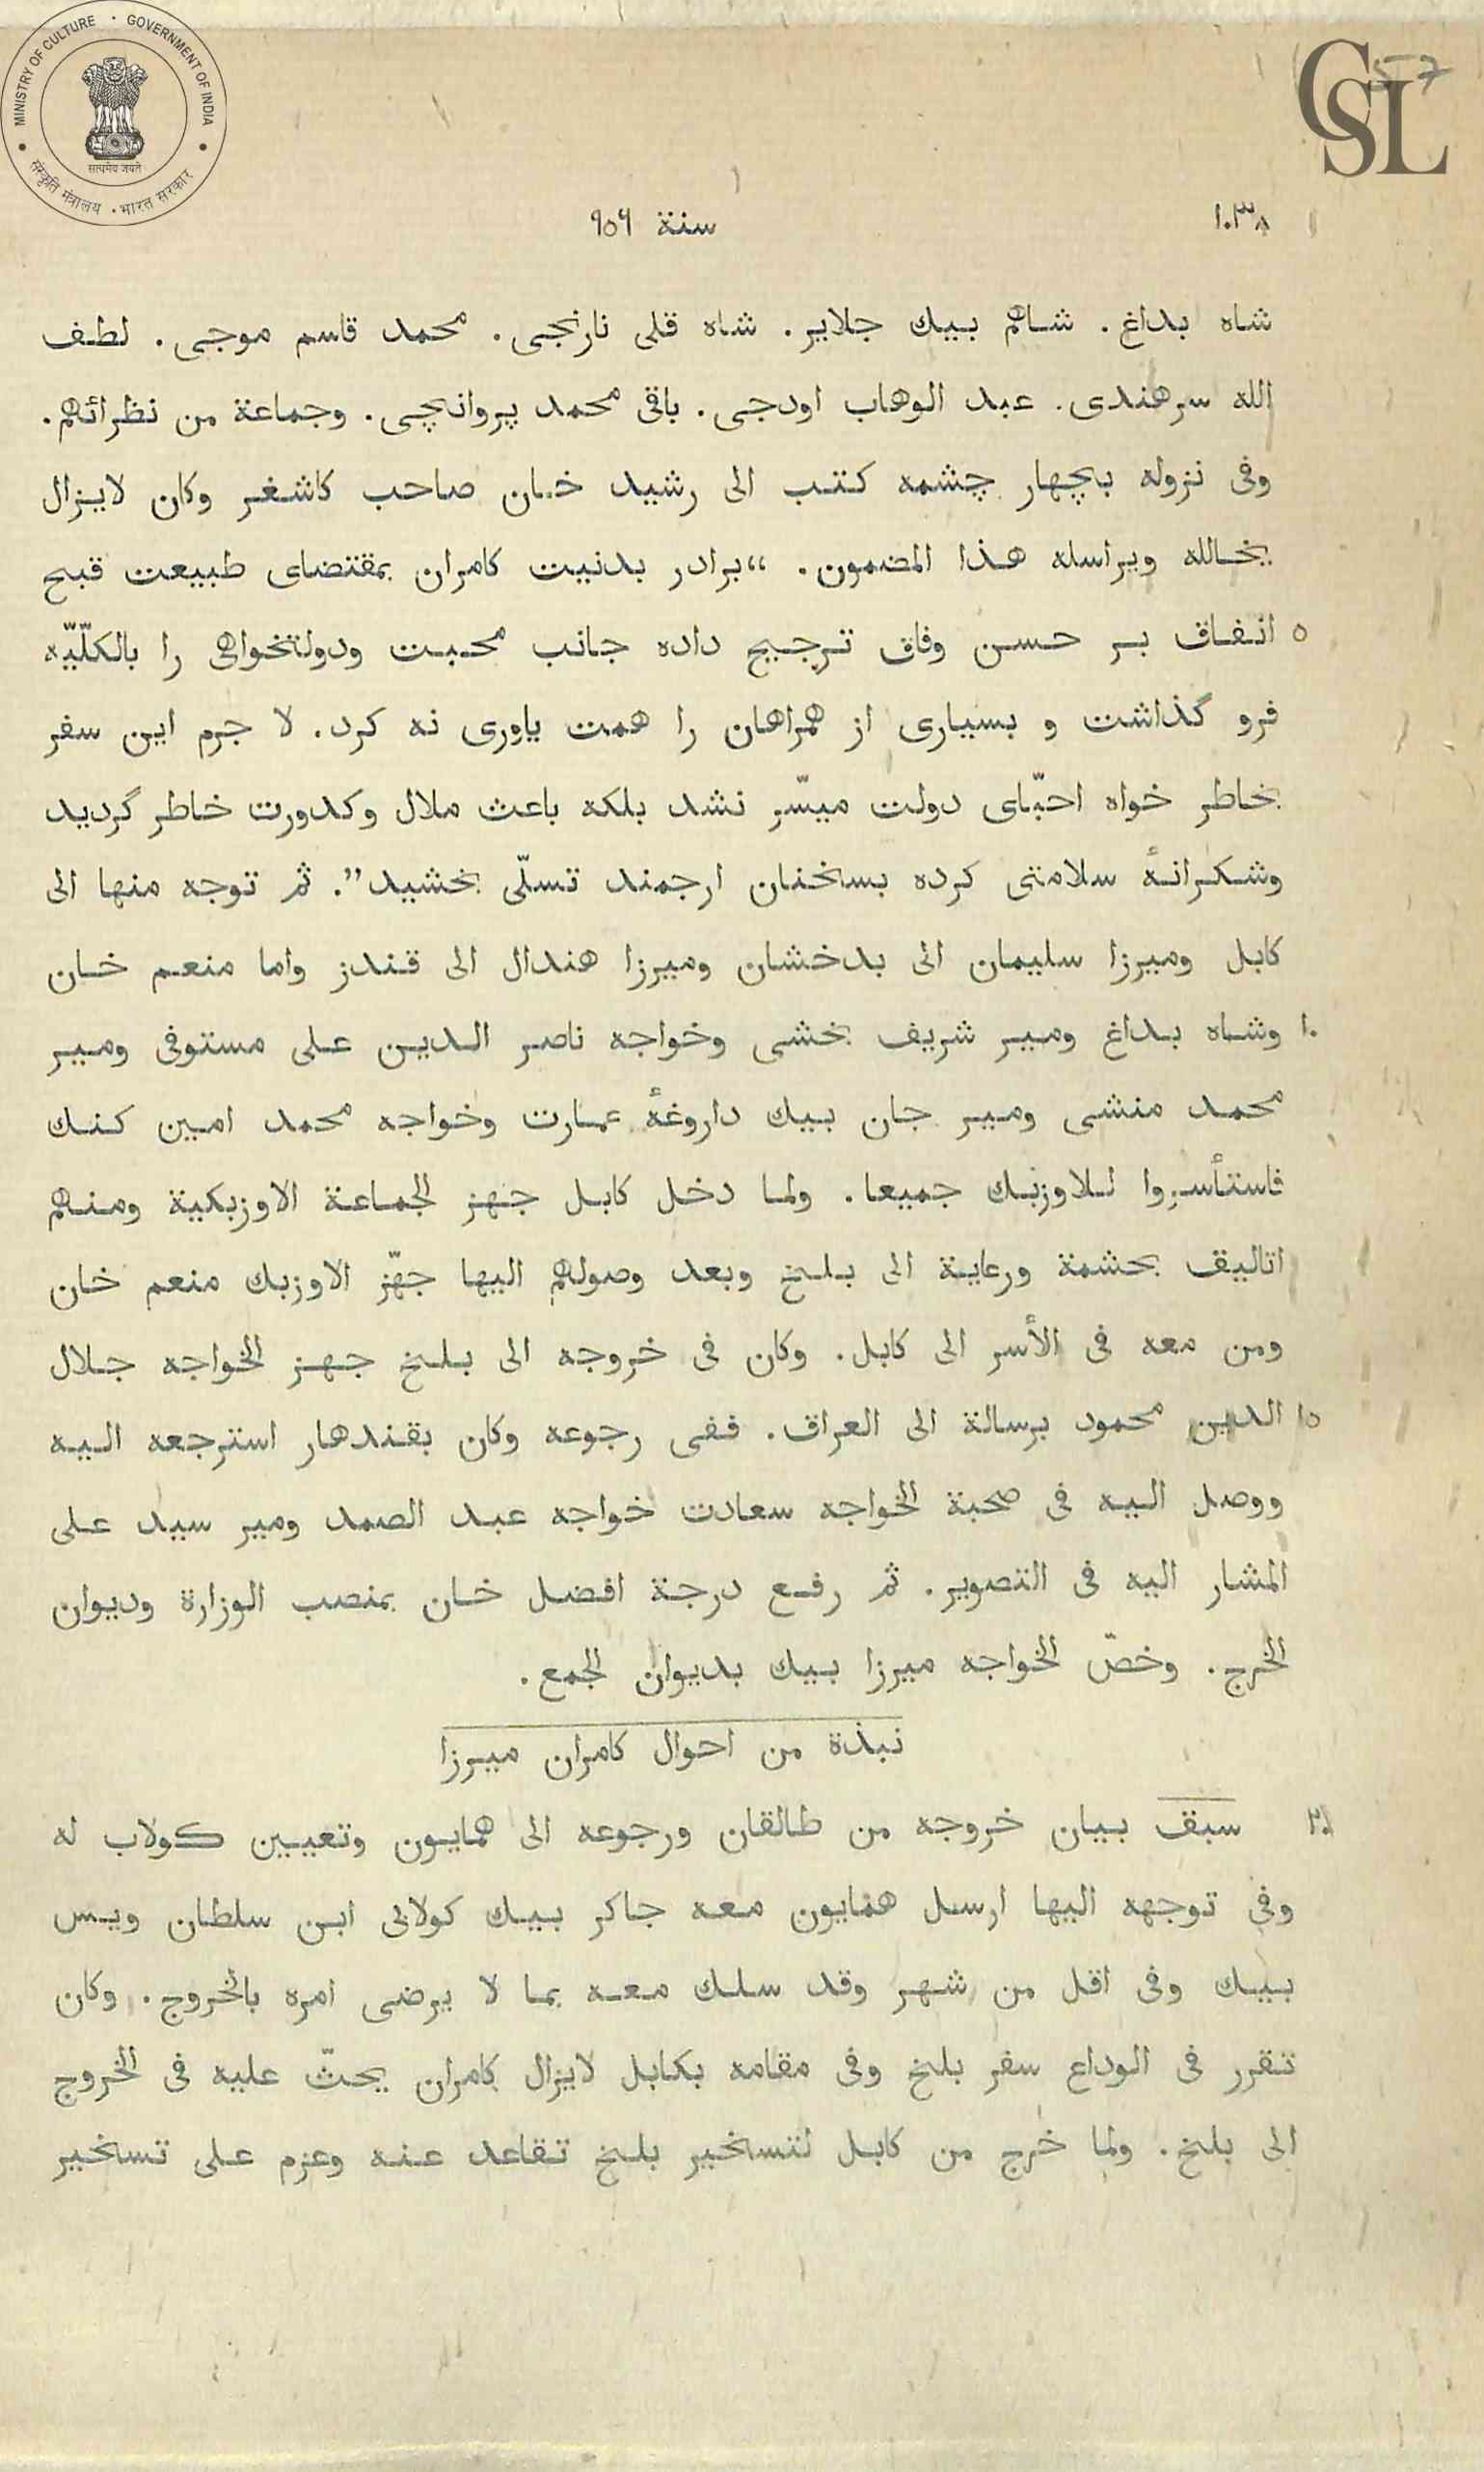 MINISTRY OF CULTURE · GOVERNMENT OF INDIA
सत्यमेव जयते
संस्कृति मंत्रालय · भारत सरकार
CSL
١٠٣٨
سنة ٩٥٦
شاه بداغ. شاهم بيك جلاير. شاه قلى نارنجى. محمد قاسم موجى. لطف
الله سرهندى. عبد الوهاب اودجى. باقى محمد پروانچى. وجماعة من نظرائهم.
وفى نزوله بچهار چشمه كتب الى رشيد خان صاحب كاشغر وكان لايزال
يخالله ويراسله هذا المضمون. “برادر بدنيت كامران بمقتضاى طبيعت قبح
٥ انفاق بر حسن وفاق ترجيح داده جانب محبت ودولتخواهى را بالكلّيّه
فرو گذاشت و بسيارى از همراهان را همت ياورى نه كرد. لا جرم اين سفر
بخاطر خواه احبّاى دولت ميسّر نشد بلكه باعث ملال وكدورت خاطر گرديد
وشكرانهٔ سلامتى كرده بسخنان ارجمند تسلّى بخشيد”. ثم توجه منها الى
كابل وميرزا سليمان الى بدخشان وميرزا هندال الى قندز واما منعم خان
١٠ وشاه بداغ ومير شريف بخشى وخواجه ناصر الدين على مستوفى ومير
محمد منشى ومير جان بيك داروغهٔ عمارت وخواجه محمد امين كنك
فاستأسروا للاوزبك جميعا. ولما دخل كابل جهز الجماعة الاوزبكية ومنهم
اتاليق بحشمة ورعاية الى بلخ وبعد وصولهم اليها جهّز الاوزبك منعم خان
ومن معه فى الأسر الى كابل. وكان فى خروجه الى بلخ جهز الخواجه جلال
١٥ الدين محمود برسالة الى العراق. ففى رجوعه وكان بقندهار استرجعه اليه
ووصل اليه فى صحبة الخواجه سعادت خواجه عبد الصمد ومير سيد على
المشار اليه فى التصوير. ثم رفع درجة افضل خان بمنصب الوزارة وديوان
الخرج. وخصّ الخواجه ميرزا بيك بديوان الجمع.
نبذة من احوال كامران ميرزا
٢٠ سبق بيان خروجه من طالقان ورجوعه الى همايون وتعيين كولاب له
وفى توجهه اليها ارسل همايون معه جاكر بيك كولابى ابن سلطان ويس
بيك وفى اقل من شهر وقد سلك معه بما لا يرضى امره بالخروج. وكان
تقرر فى الوداع سفر بلخ وفى مقامه بكابل لايزال كامران يحثّ عليه فى الخروج
الى بلخ. ولما خرج من كابل لتسخير بلخ تقاعد عنه وعزم على تسخير